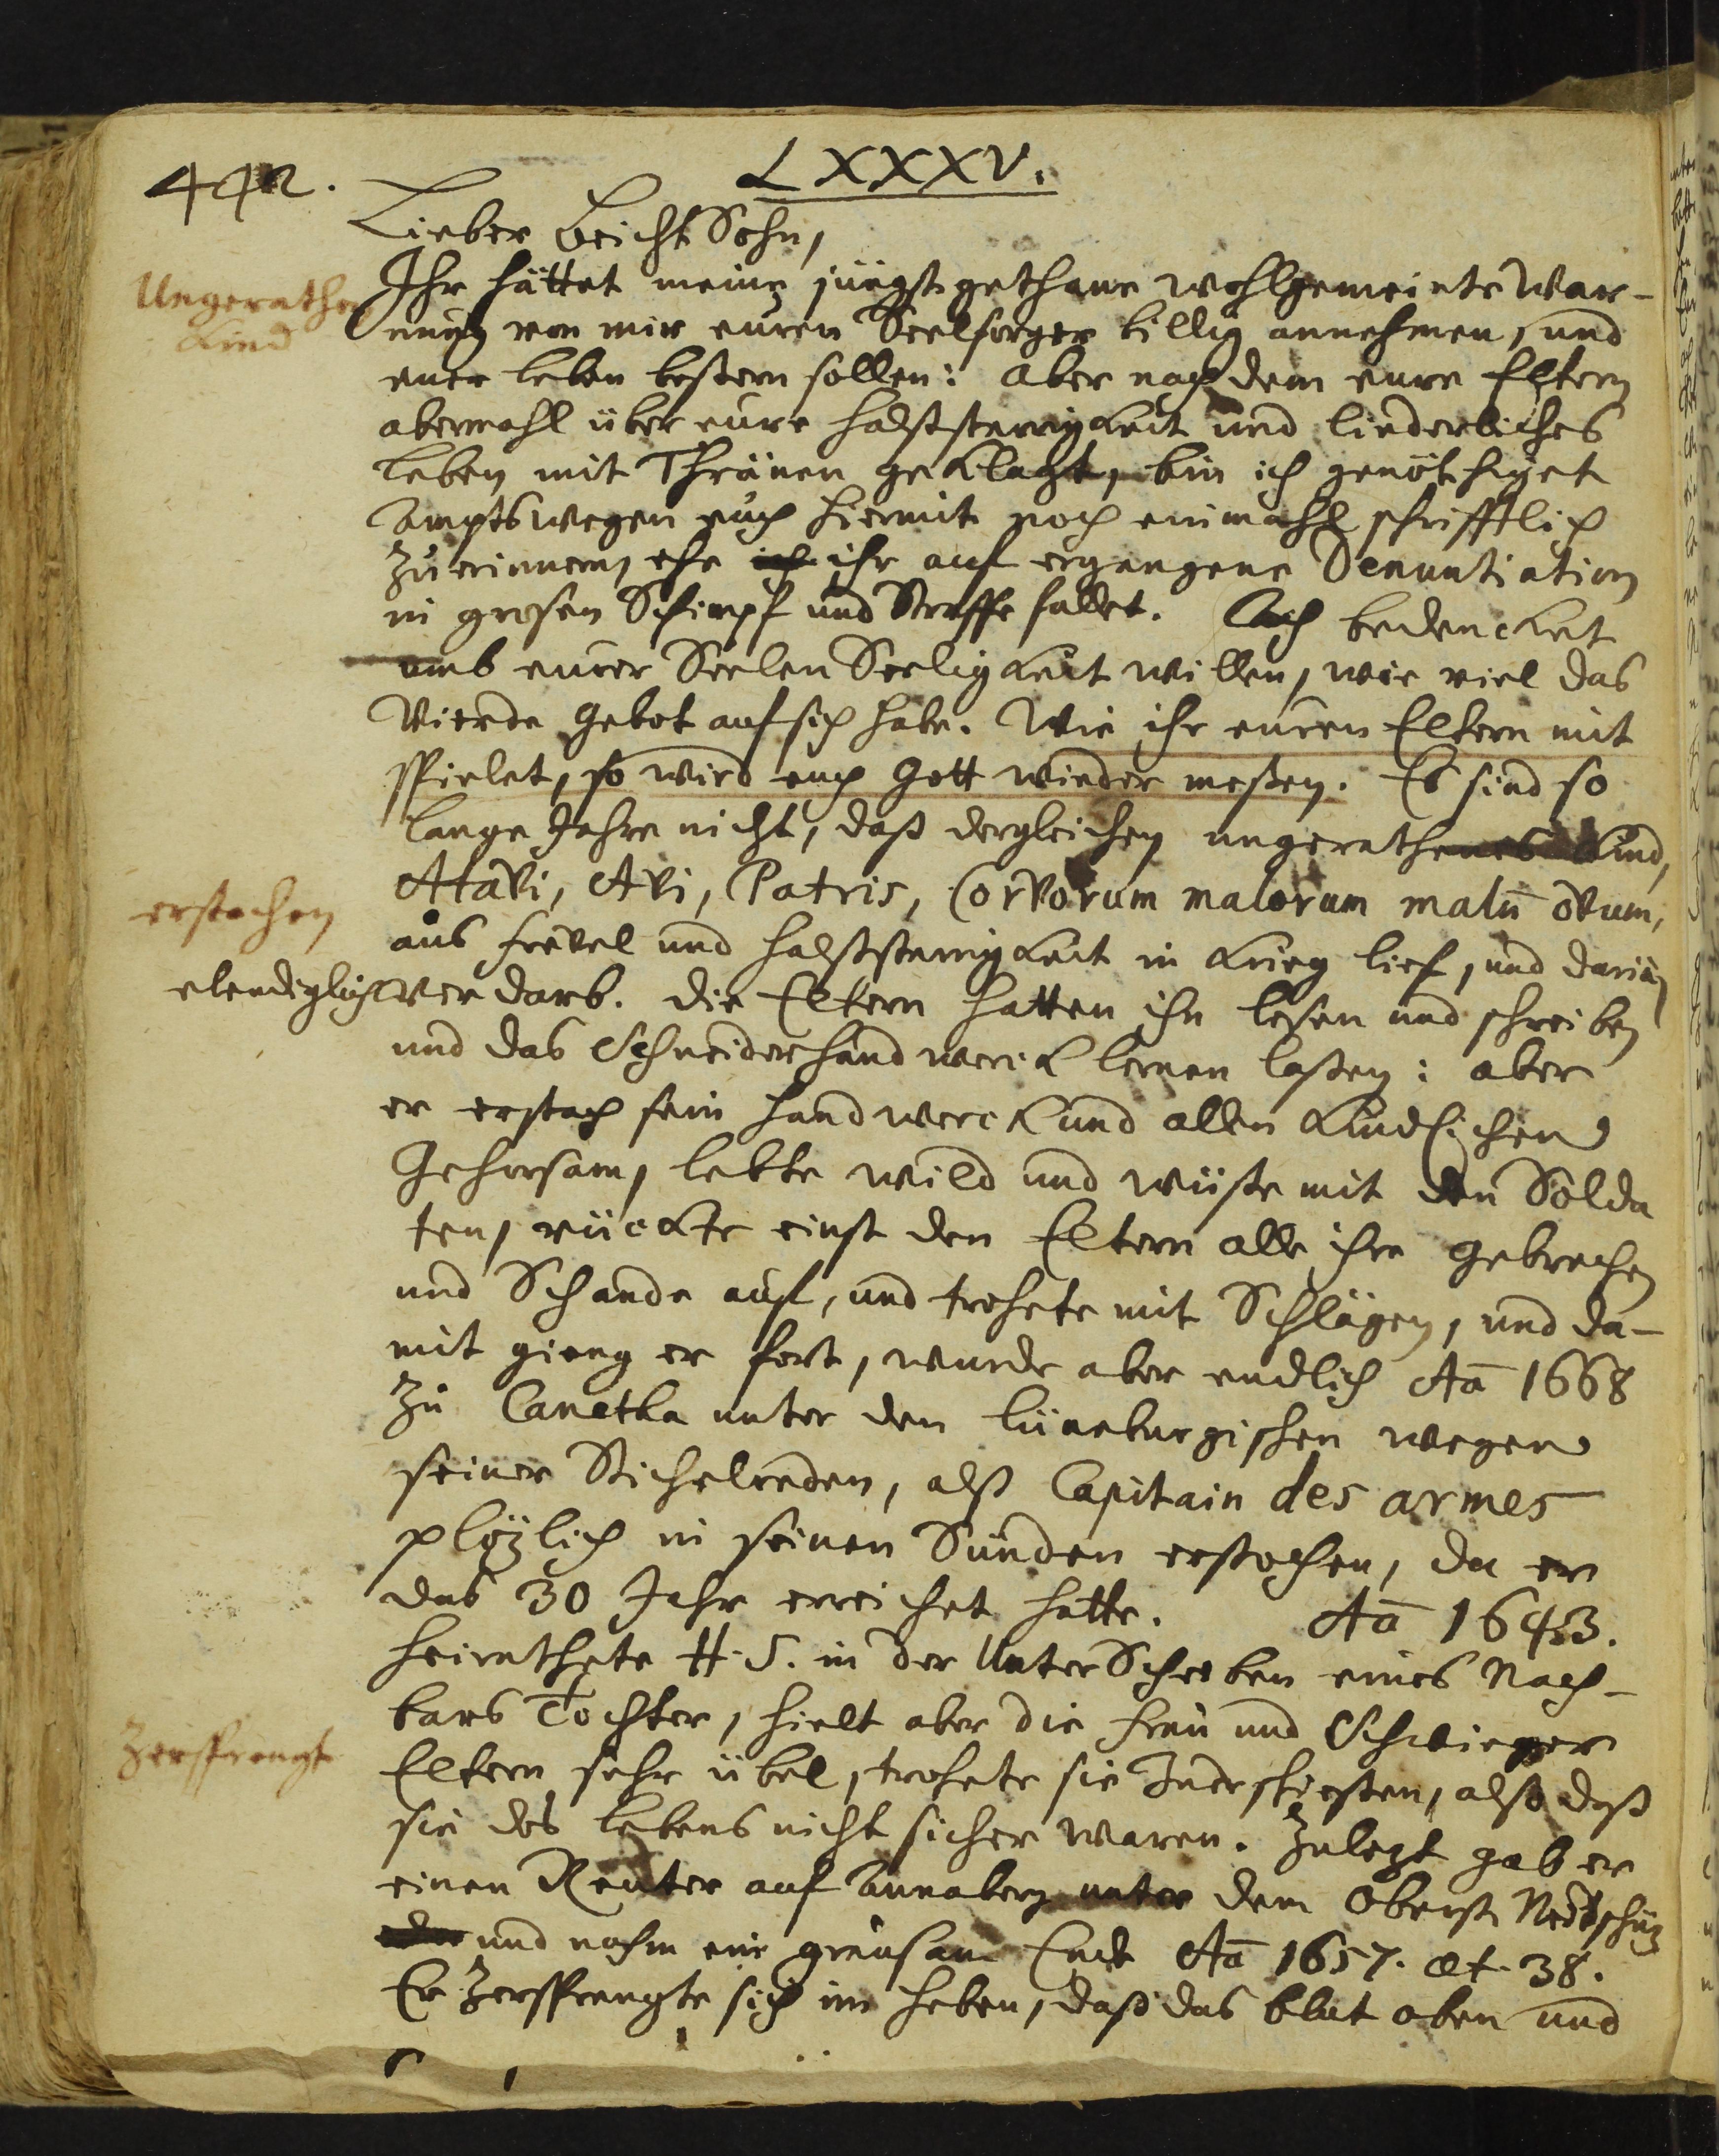 442.
LXXXV.
Lieber Beicht Sohn,
Ungerathen
Kind
Ihr hättet meine jüngst gethane wohlgemeinte War-
nung von mir euren Seelsorger billig annehmen, und
euer leben bessern sollen: Aber nach dem eure Eltern
abermahl über eure halsstarrigkeit und liederliches
leben mit Thränen geklagt, bin ich genöthiget
Ampts wegen euch hiermit noch einmahl schrifftlich
zu erinnern, ehe ihr auf ergangene Denuntiation
in grosen Schimpf und Straffe fallet. Ach bedencket
umb eurer Seelen Seeligkeit willen, wie viel das
Vierde Gebot auf sich habe. Wie ihr euren Eltern mit
spielet, so wird euch Gott wieder meßen. Es sind so
lange Jahre nicht, daß dergleichen ungerathenes Kind,
Atavi, Avi, Patris, Corvorum malorum malū ovum,
erstochen
aus frevel und halsstarrigkeit in Krieg lief, und darin
elendiglich verdarb. Die Eltern hatten ihn lesen und schreiben
und das Schneiderhandwerck lernen laßen: aber
er erstach sein handwerck und allen Kindlichen
Gehorsam, lebte wild und wüste mit den Solda
ten, rückte einst den Eltern alle ihre gebrechen
und Schande auf, und trohete mit Schlägen, und da-
mit gieng er fort, wurde aber endlich Aō 1668
zu unter den lüneburgischen wegen
seiner Stichelreden, alß Capitain des armes
plözlich in seinen Sünden erstochen, da er
das 30 Jahr erreichet hatte. Aō 1643.
heirathete H. S. in der Unter Scheiben eines Nach-
bars Tochter, hielt aber die frau und Schwieger
zersprengt
Eltern sehr übel, trohete sie zu erschießen, also daß
sie des lebens nicht sicher waren. Zulezt gab er
einen Reuter auf Annaberg unter dem Oberst
und nahm ein greusam Ende Aō 1657. æt. 38.
Er zersprengte sich im heben, daß das blut oben und